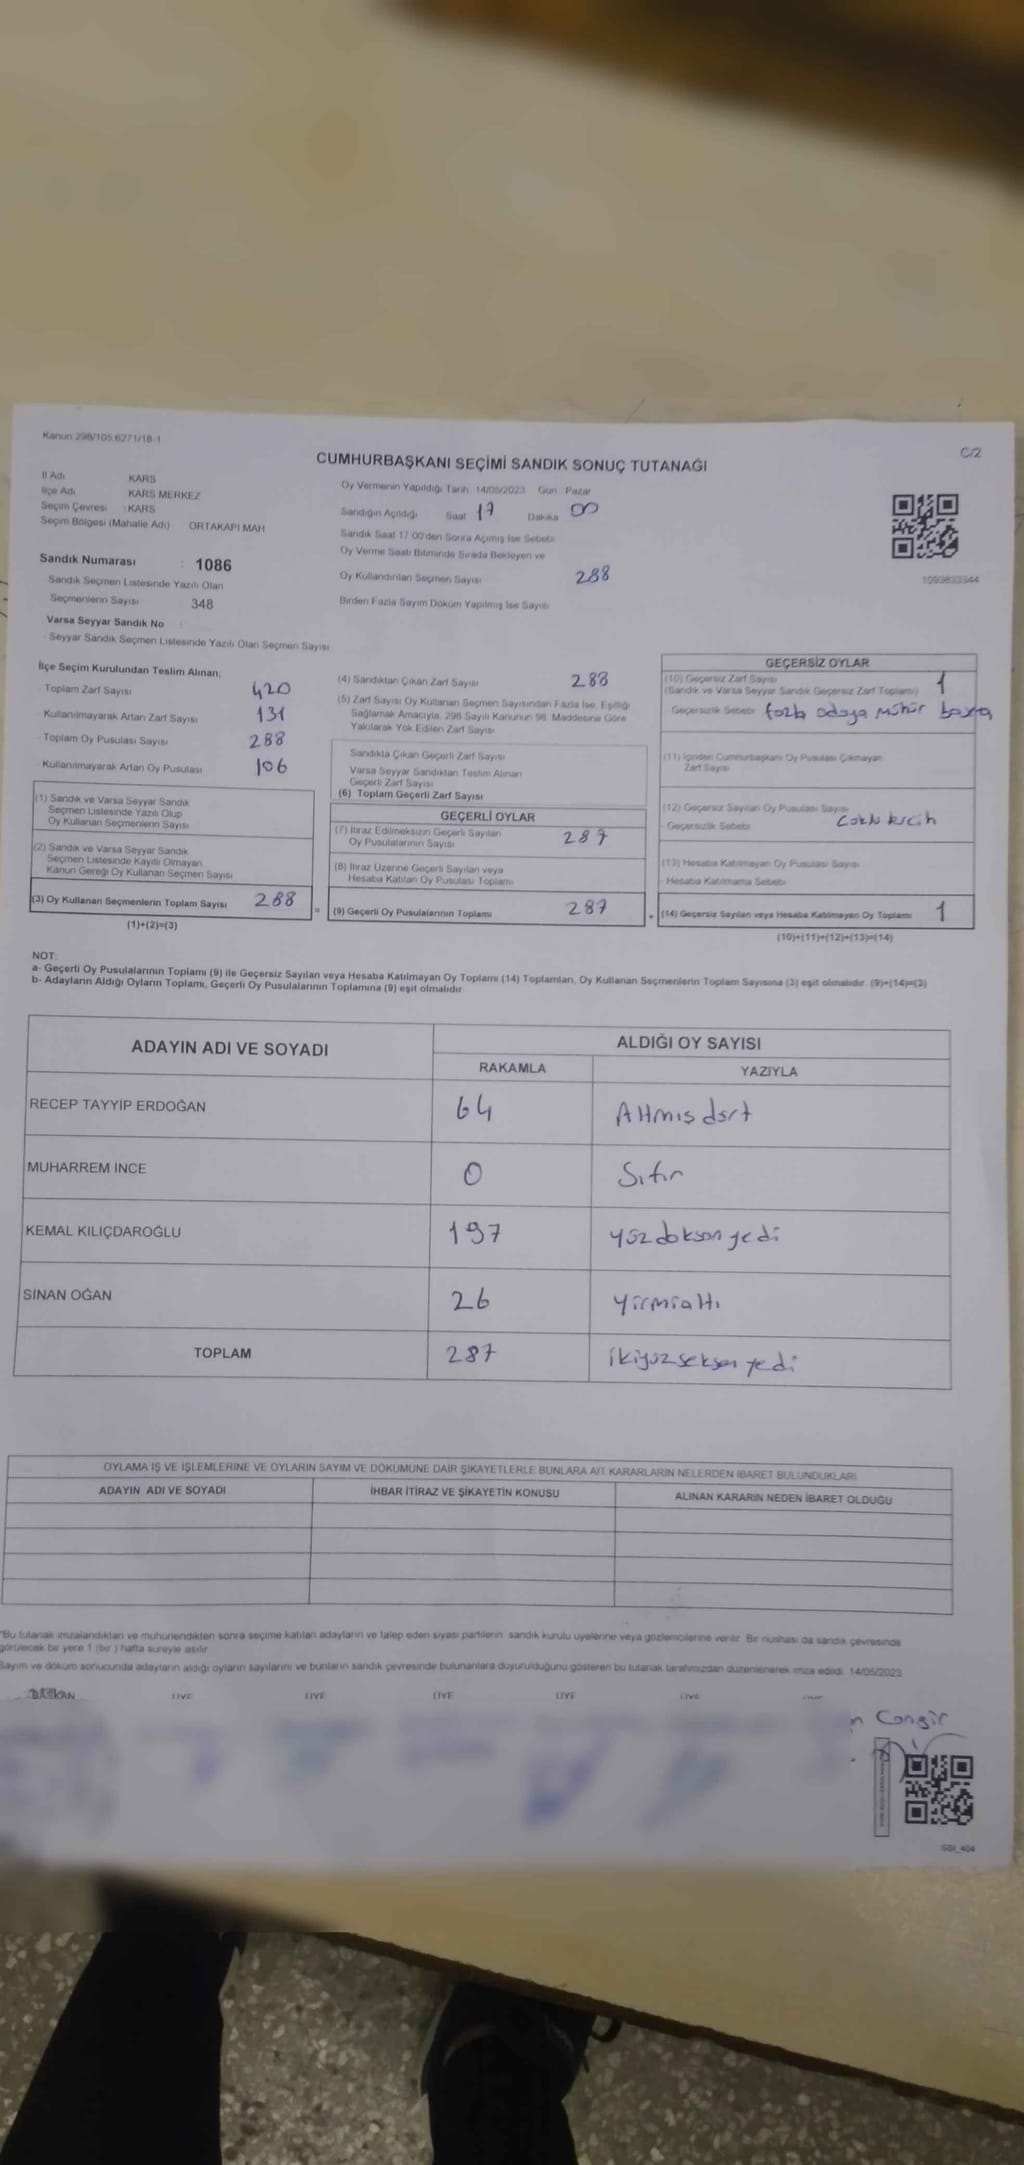 Kanun 298/105.6271/18-1
C/2
CUMHURBAŞKANI SEÇİMİ SANDIK SONUÇ TUTANAĞI
İl Adı KARS
İlçe Adı KARS MERKEZ
Seçim Çevresi : KARS
Seçim Bölgesi (Mahalle Adı) ORTAKAPI MAH
Sandık Numarası : 1086
Sandık Seçmen Listesinde Yazılı Olan
Seçmenlerin Sayısı 348
Varsa Seyyar Sandık No
Seyyar Sandık Seçmen Listesinde Yazılı Olan Seçmen Sayısı
Oy Vermenin Yapıldığı Tarih 14/05/2023 Gün Pazar
Sandığın Açıldığı Saat 17 Dakika 00
Sandık Saat 17:00'den Sonra Açmış İse Sebebi
Oy Verme Saati Bitiminde Sırada Bekleyen ve
Oy Kullandırılan Seçmen Sayısı 288
Birden Fazla Sayım Döküm Yapılmış İse Sayısı
1093833344
İlçe Seçim Kurulundan Teslim Alınan;
Toplam Zarf Sayısı 420
Kullanılmayarak Artan Zarf Sayısı 131
Toplam Oy Pusulası Sayısı 288
Kullanılmayarak Artan Oy Pusulası 106
(1) Sandık ve Varsa Seyyar Sandık
Seçmen Listesinde Yazılı Olup
Oy Kullanan Seçmenlerin Sayısı
(2) Sandık ve Varsa Seyyar Sandık
Seçmen Listesinde Kayıtlı Olmayan
Kanun Gereği Oy Kullanan Seçmen Sayısı
(3) Oy Kullanan Seçmenlerin Toplam Sayısı 288
(1)+(2)=(3)
=
(4) Sandıktan Çıkan Zarf Sayısı 288
(5) Zarf Sayısı Oy Kullanan Seçmen Sayısından Fazla İse, Eşitliği
Sağlamak Amacıyla, 298 Sayılı Kanunun 98. Maddesine Göre
Yakılarak Yok Edilen Zarf Sayısı
Sandıkta Çıkan Geçerli Zarf Sayısı
Varsa Seyyar Sandıktan Teslim Alınan
Geçerli Zarf Sayısı
(6) Toplam Geçerli Zarf Sayısı
GEÇERLİ OYLAR
(7) İtiraz Edilmeksizin Geçerli Sayılan
Oy Pusulalarının Sayısı 287
(8) İtiraz Üzerine Geçerli Sayılan veya
Hesaba Katılan Oy Pusulası Toplamı
(9) Geçerli Oy Pusulalarının Toplamı 287
+
GEÇERSİZ OYLAR
(10) Geçersiz Zarf Sayısı 1
(Sandık ve Varsa Seyyar Sandık Geçersiz Zarf Toplamı)
Geçersizlik Sebebi fazla adaya mühür basma
(11) İçinden Cumhurbaşkanı Oy Pusulası Çıkmayan
Zarf Sayısı
(12) Geçersiz Sayılan Oy Pusulası Sayısı
- Geçersizlik Sebebi
(13) Hesaba Katılmayan Oy Pusulası Sayısı
- Hesaba Katılmama Sebebi
(14) Geçersiz Sayılan veya Hesaba Katılmayan Oy Toplamı 1
(10)+(11)+(12)+(13)=(14)
NOT:
a- Geçerli Oy Pusulalarının Toplamı (9) ile Geçersiz Sayılan veya Hesaba Katılmayan Oy Toplamı (14) Toplamları, Oy Kullanan Seçmenlerin Toplam Sayısına (3) eşit olmalıdır. (9)+(14)=(3)
b- Adayların Aldığı Oyların Toplamı, Geçerli Oy Pusulalarının Toplamına (9) eşit olmalıdır.
ADAYIN ADI VE SOYADI
ALDIĞI OY SAYISI
RAKAMLA YAZIYLA
RECEP TAYYİP ERDOĞAN 64 Altmış dört
MUHARREM İNCE 0 Sıfır
KEMAL KILIÇDAROĞLU 197 yüzdoksanyedi
SİNAN OĞAN 26 yirmialtı
TOPLAM 287 ikiyüzseksenyedi
OYLAMA İŞ VE İŞLEMLERİNE VE OYLARIN SAYIM VE DÖKÜMÜNE DAİR ŞİKAYETLERLE BUNLARA AİT KARARLARIN NELERDEN İBARET BULUNDUKLARI
ADAYIN ADI VE SOYADI İHBAR İTİRAZ VE ŞİKAYETİN KONUSU ALINAN KARARIN NEDEN İBARET OLDUĞU
*Bu tutanak imzalandıktan ve mühürlendikten sonra seçime katılan adayların ve talep eden siyasi partilerin sandık kurulu üyelerine veya gözlemcilerine verilir. Bir nüshası da sandık çevresinde
görülecek bir yere 1 (bir ) hafta süreyle asılır
Sayım ve döküm sonucunda adayların aldığı oyların sayılarını ve bunların sandık çevresinde bulunanlara duyurulduğunu gösteren bu tutanak tarafımızdan düzenlenerek imza edildi. 14/05/2023
BAŞKAN ÜYE ÜYE ÜYE ÜYE ÜYE
Cangir